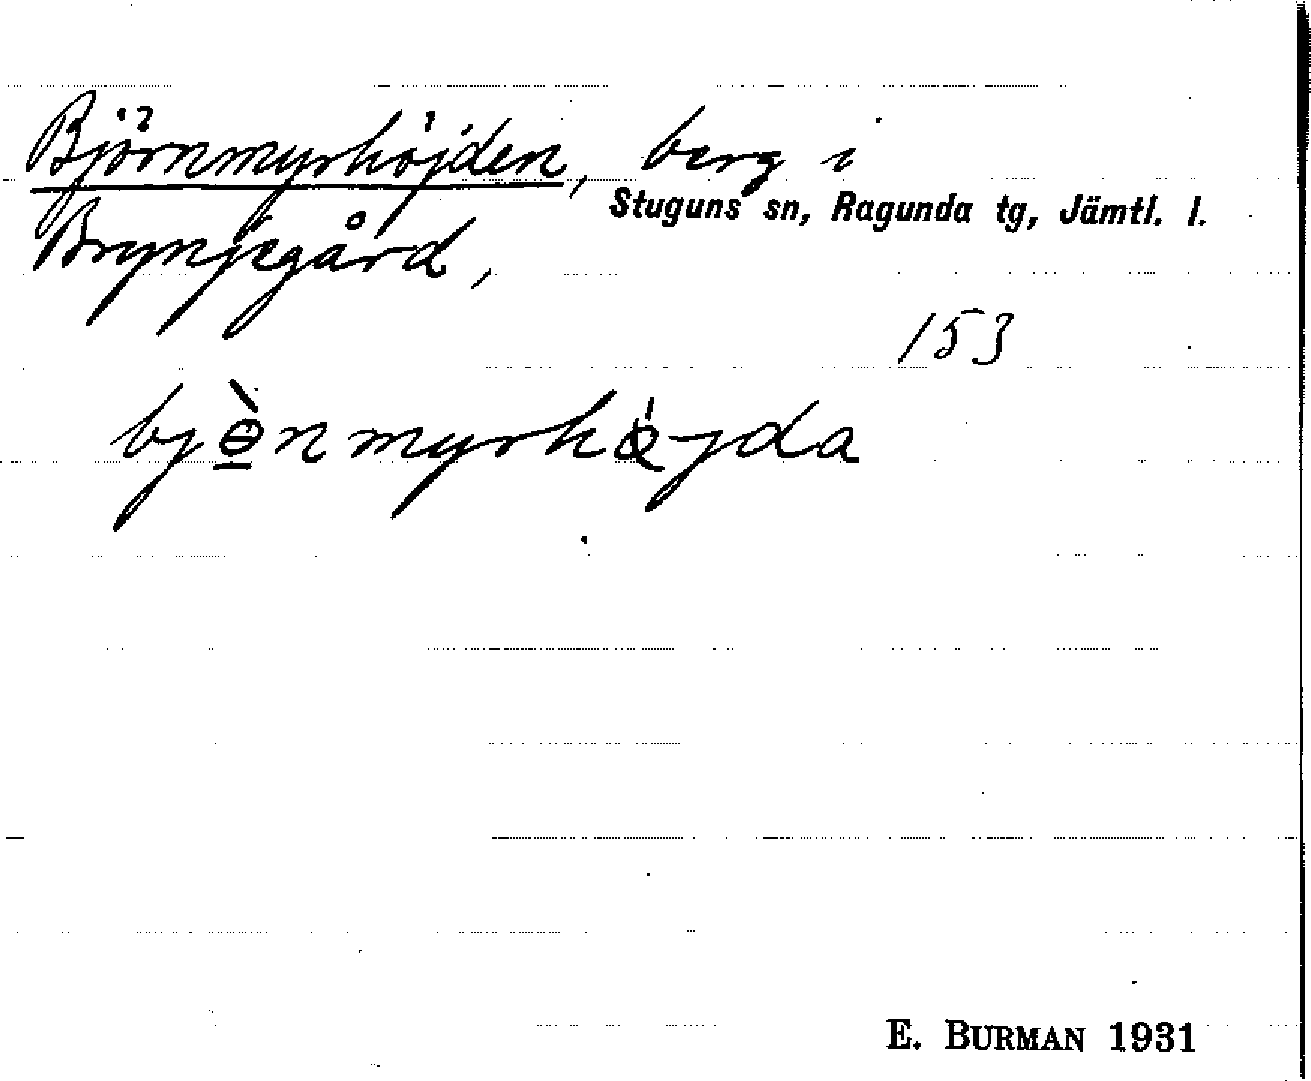 Björnmyrhöjden, berg i
Stuguns sn, Ragunda tg, Jämtl. l.
Brynjegård,
153
bjɵ̀nmyrhǿjda
E. BURMAN 1931